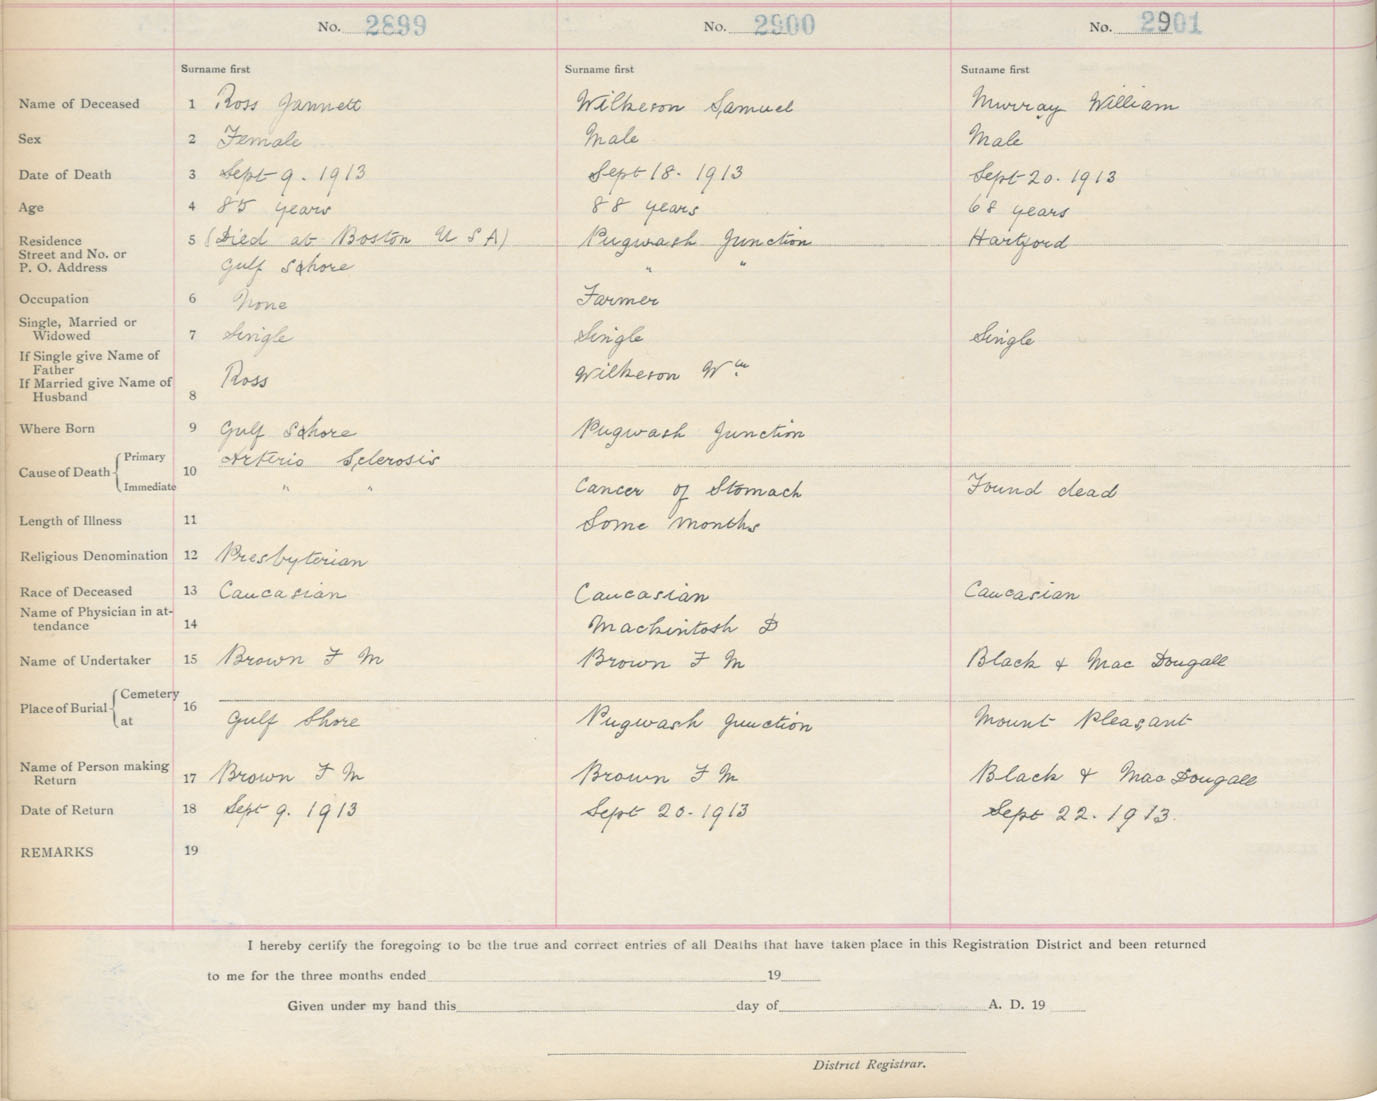 No. 2899 No. 2900 No. 2901
Surname first Surname first Surname first
Name of Deceased 1 Ross Jannett Wilkeson Samuel Murray William
Sex 2 Female Male Male
Date of Death 3 Sept 9. 1913 Sept 18. 1913 Sept 20. 1913
Age 4 85 years 88 years 68 years
Residence 5 (Died at Boston U S A) Pugwash Junction Hartford
Street and No. or
P. O. Address Gulf Shore " "
Occupation 6 None Farmer
Single, Married or
Widowed 7 Single Single Single
If Single give Name of
Father
If Married give Name of Ross Wilkeson Wm
Husband 8
Where Born 9 Gulf Shore Pugwash Junction
Primary Arterio Sclerosis
Cause of Death 10
Immediate " " Cancer of Stomach Found dead
Length of Illness 11 Some months
Religious Denomination 12 Presbyterian
Race of Deceased 13 Caucasian Caucasian Caucasian
Name of Physician in at-
tendance 14 Mackintosh D
Name of Undertaker 15 Brown F M Brown F M Black & Mac Dougall
Cemetery
Place of Burial 16
at Gulf Shore Pugwash Junction Mount Pleasant
Name of Person making
Return 17 Brown F M Brown F M Black & Mac Dougall
Date of Return 18 Sept 9. 1913 Sept 20. 1913 Sept 22. 1913.
REMARKS 19
I hereby certify the foregoing to be the true and correct entries of all Deaths that have taken place in this Registration District and been returned
to me for the three months ended 19
Given under my hand this day of A. D. 19
District Registrar.